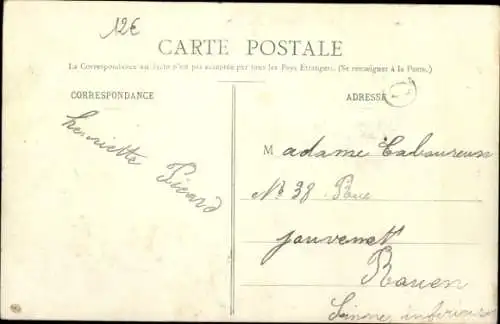 12€
CARTE POSTALE
La Correspondance au recto n'est pas acceptée par tous les Pays Etrangers. (Se renseigner à la Poste.)
CORRESPONDANCE
ADRESSE
Henriette
Picard
Madame
No 38 Rue
Jouvenet
Rouen
Seine inférieure